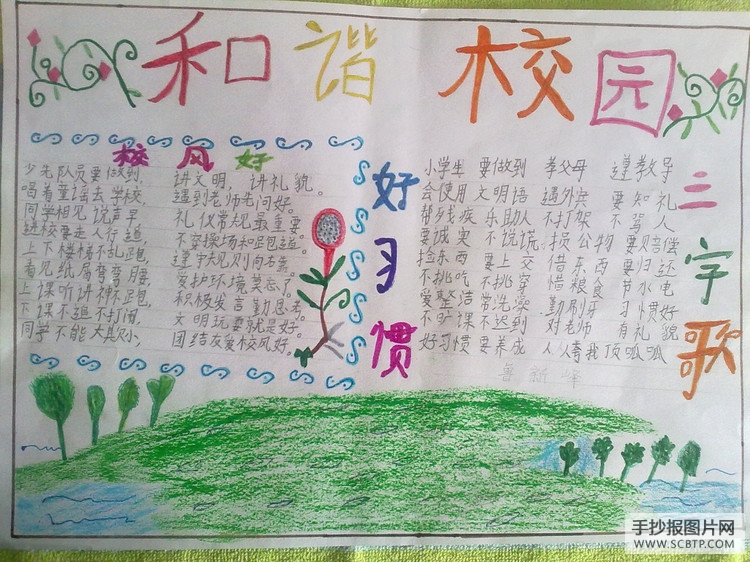 和谐校园
校风好
少先队员要做到,
唱着童谣去学校,
同学相见说声早,
进校要走人行道,
上下楼梯不乱跑,
看见纸屑弯弯腰,
上课听讲神不跑,
下课不追不打闹,
同学不能大欺小,
讲文明,讲礼貌。
遇到老师先问好。
礼仪常规最重要。
不穿操场和跑道。
遵守规则向右靠。
爱护环境莫忘了。
积极发言勤思考。
文明玩耍就是好。
团结友爱校风好。
好习惯
三字歌
小学生 要做到 孝父母 遵教导
会使用 文明语 遇外宾 要知礼
帮残疾 乐助人 不打架 不骂人
要诚实 不说谎 损公物 要赔偿
捡东西 要上交 借东西 要归还
不挑吃 不挑穿 惜粮食 节水电
爱整洁 常洗澡 勤刷牙 习惯好
不旷课 不迟到 对老师 有礼貌
好习惯 要养成 人人夸我 顶呱呱
手抄报图片网
WWW.SCBTP.COM